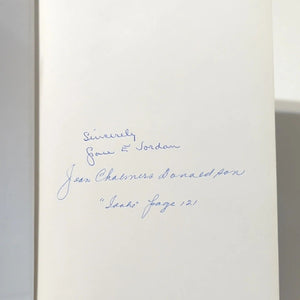 Sincerely
Grace E. Jordan
Jean Chalmers Donaldson
"Idaho" page 121